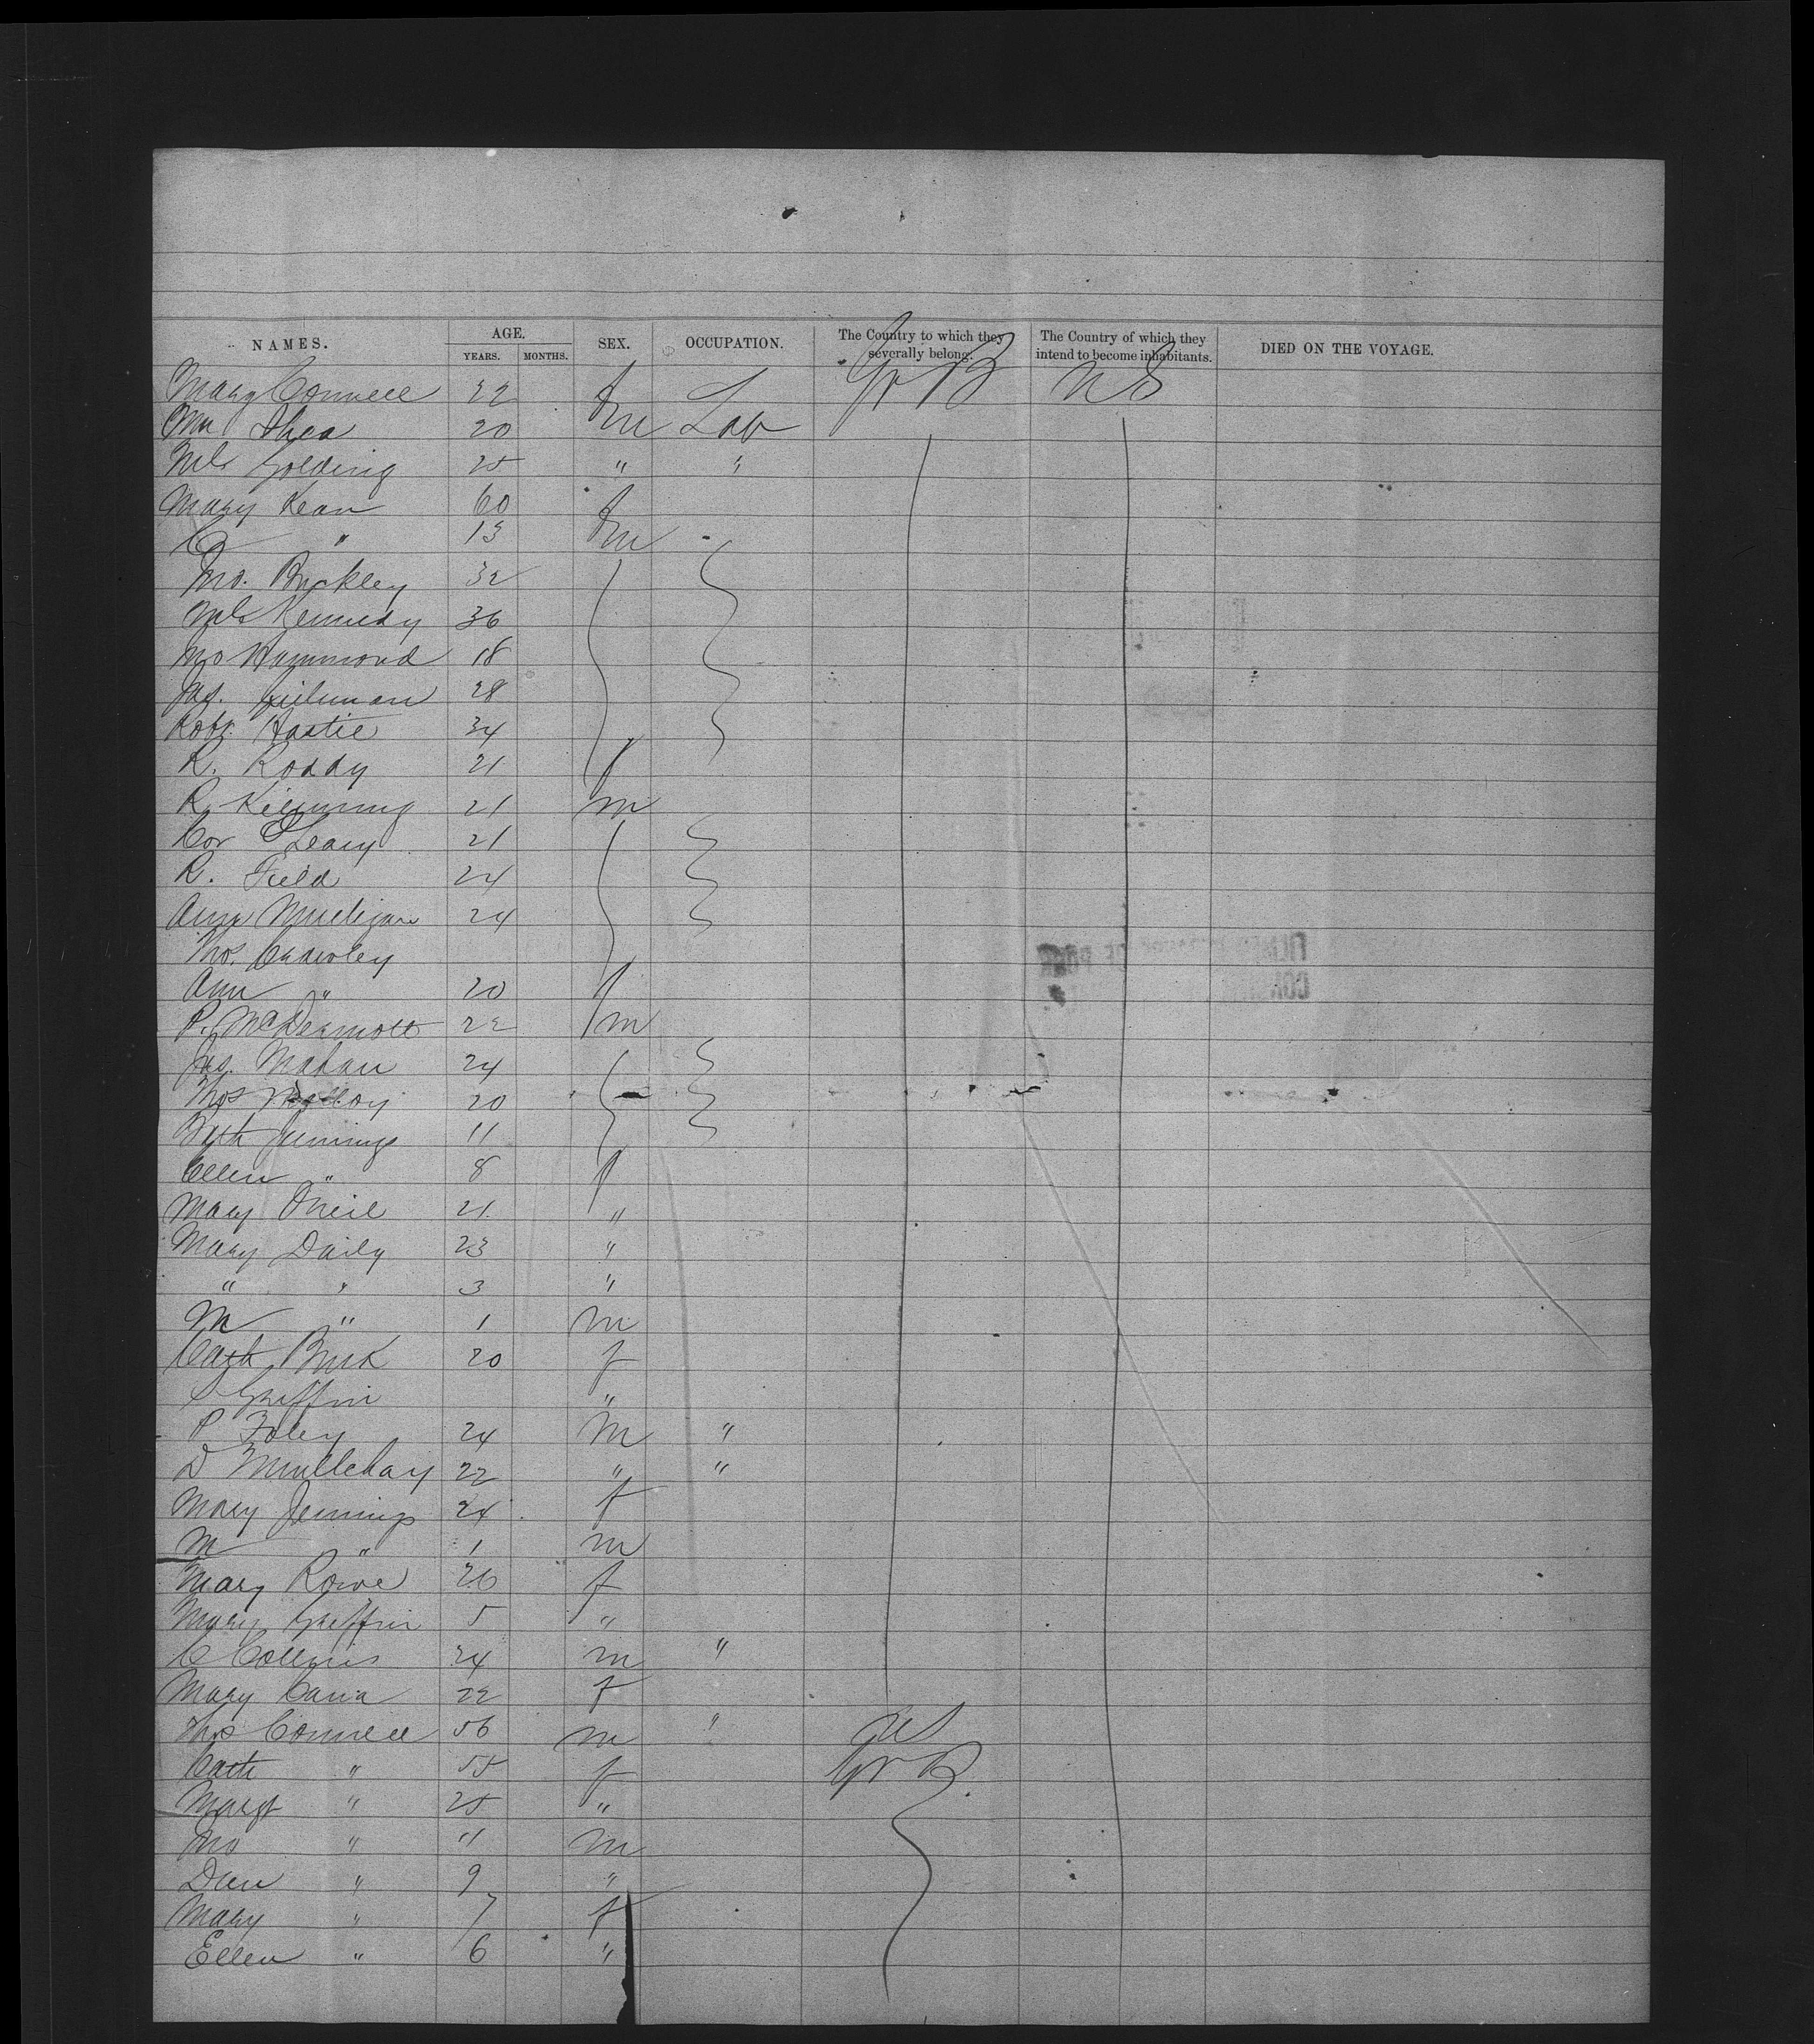 NAMES. AGE. YEARS. MONTHS. SEX. OCCUPATION. The Country to which they severally belong. The Country of which they intend to become inhabitants. DIED ON THE VOYAGE.
Mary Connell 22 f Gr B U S
Wm Shea 20 m Lab
Mls Golding 25 " "
Mary Kean 60 f
C " 13 m
Jno. Buckley 32
Mls Kennedy 36
Jno Hammond 18
Jas. 28
Robt. Hastie 34
R. Roddy 21 f
R. 21 m
Cor O'Leary 21
R. Field 24
Mulligan 24
Thos. Crawley
Ann " 20 f
P. McDermott 22 m
Jas. Mahan 24
Thos Molloy 20
Jennings 11
Ellen " 8 f
Mary O'Neil 21 "
Mary Daily 23 "
" " 3 "
M " 1 m
Cath Burk 20 f
S Griffin "
P Foley 24 m "
D 22 " "
Mary Jennings 24 f
M " 1 m
Mary Rowe 20 f
Mary Griffin 5 "
C Collins 24 m "
Mary 22 f
Thos Connell 56 m " U S
Cath " 55 f Gr B.
Margt " 25 "
Jno " 11 m
Dan " 9 "
Mary " 7 f
Ellen " 6 "